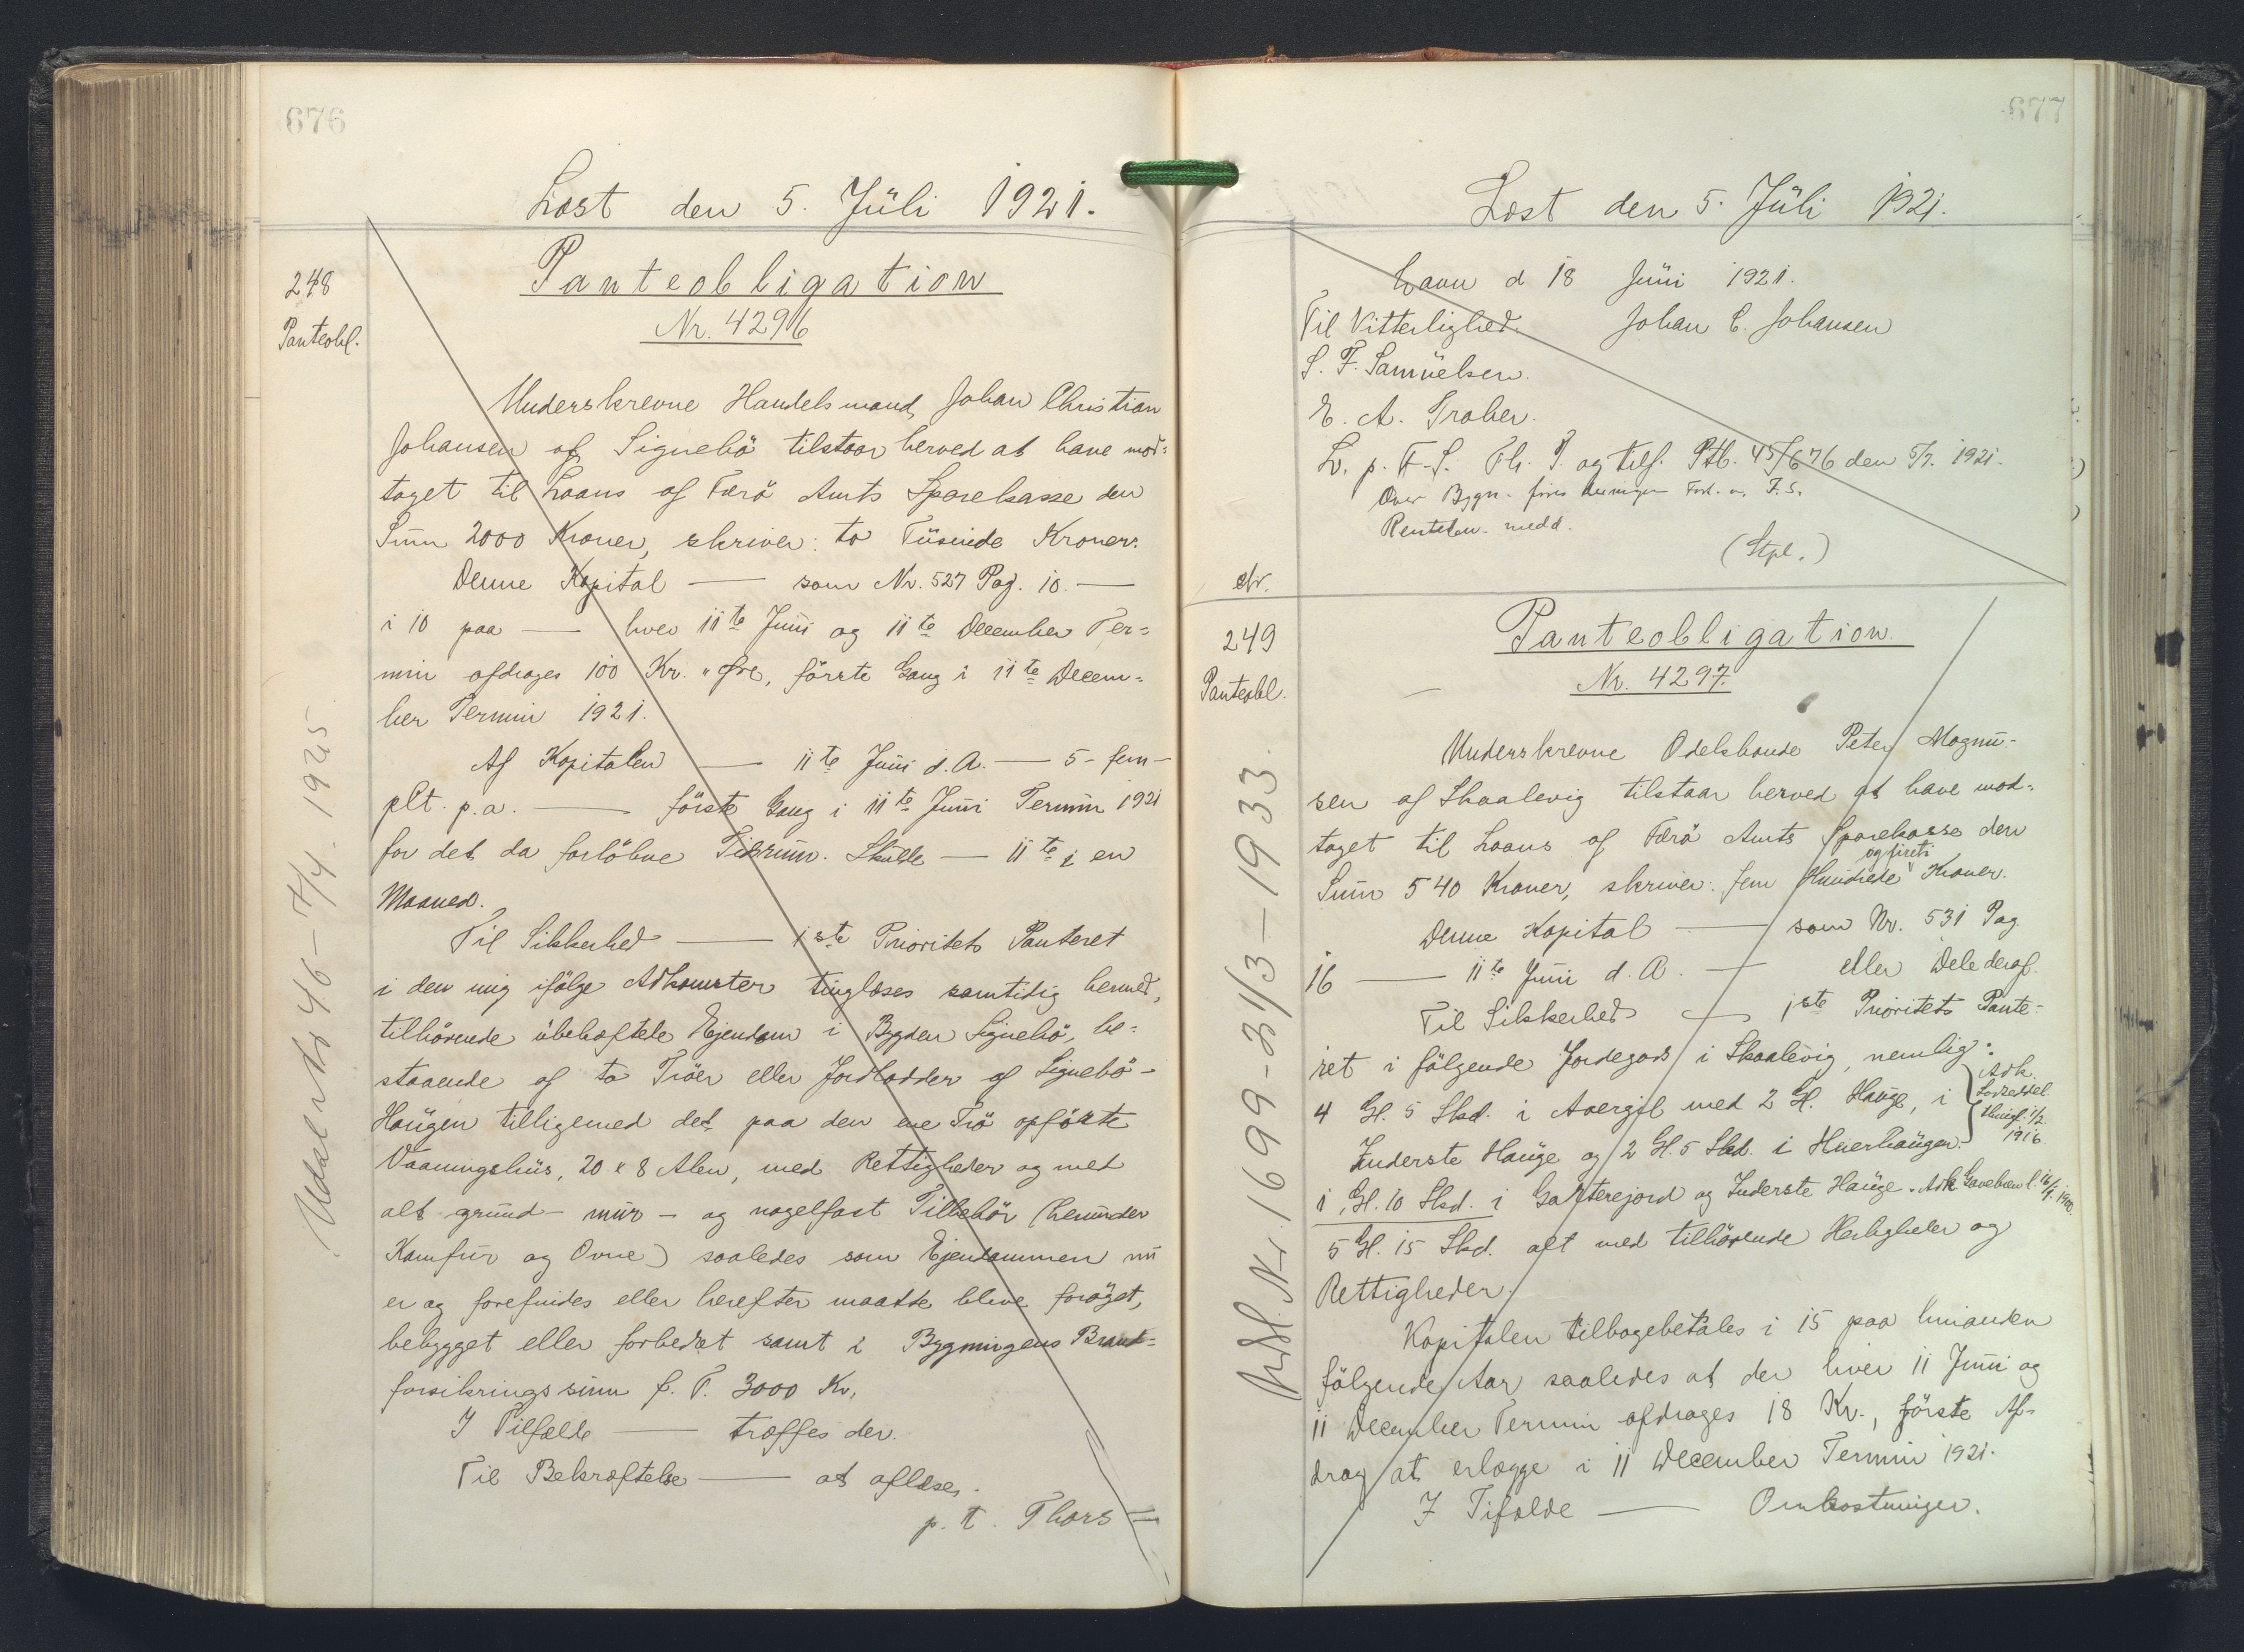 676
Læst den 5. Jüli 1921.
248
Panteobl.
Panteobligation
Nr. 4296
Underskrevne Handelsmand Johan Christian
Johansen af Signebö tilstaar herved at have mod=
taget til Laans af Færö Amts Sparekasse den
Sum 2000 Kroner, skriver: to Tüsinde Kroner.
Denne Kapital — som Nr. 527 Pag. 10. —
i 10 paa — hver 11te Juni og 11te December Ter=
min afdrages 100 Kr. " Øre, förste Gang i 11te Decem=
ber Termin 1921.
Af Kapitalen — 11te Juni d. A. — 5 - fem -
pCt. p.a. — förste Gang i 11te Juni Termin 1921
for det da forlöbne Tidsrum. Skulde — 11te i en
Maaned.
Til Sikkerhed — 1ste Prioritets Panteret
i den mig ifölge Adkomster tinglæses samtidig hermed,
tilhörende übehæftede Ejendom i Bygden Signebö, be=
staaende af to Tröer eller Jordlodder af Signebö-
Haugen tilligemed det paa den ene Trö opförte
Vaaningshüs, 20 x 8 Alen, med Rettigheder og med
alt grund- mür- og nagelfast Tilbehör (herunder
Komfür og Ovne) saaledes som Ejendommen nü
er og forefindes eller herefter maatte blive forøget,
bebygget eller forbedret samt i Bygningens Brand=
forsikringssüm p. T. 3000 Kr.
I Tilfælde — træffes der.
Til Bekræftelse — at aflæses.
p. t. Thors=
Udsl. 46 - 7/4. 1925
677
Læst den 5. Jüli 1921.
havn d 18 Juni 1921.
Til Vitterlighed. Johan C. Johansen
S. F. Samüelsen.
E. A. Traber.
L. p. F-S. Th. T. og tilf. Ptb. 45/676 den 5/7. 1921.
(Stpl.)
Nr.
249
Panteobl.
Panteobligation.
Nr. 4297.
Underskrevne Odelsbonde Peter Magnü-
sen af Skaalevig tilstaar herved at have mod=
taget til Laans af Færö Amts Sparekasse den
og fireti
Sum 540 Kroner, skriver: fem Hundrede Kroner.
Denne Kapital — som Nr. 531 Pag.
16 — 11te Juni d. A. — eller Dele deraf.
Til Sikkerhed — 1ste Prioritets Pante-
ret i fölgende Jordegods i Skaalevig, nemlig:
4 Gl. 5 Skd. i Avergil med 2 Gl. Hauge, i
Inderste Hauge og 2 Gl. 5 Skd. i Hüerhaugen.
Adk.
1916
1 Gl. 10 Skd. i og Inderste Hauge. Adk. Gavebrev
5 Gl. 15 Skd. alt med tilhörende Herligheder og
Rettigheder.
Kapitalen tilbagebetales i 15 paa hinanden
fölgende Aar saaledes at der hver 11 Juni og
11 December Termin afdrages 18 Kr., förste Af=
drag at erlægge i 11 December Termin 1921.
I Tifælde — Omkostninger.
Udsl. Nr. 1699 - 31/3 - 1933.